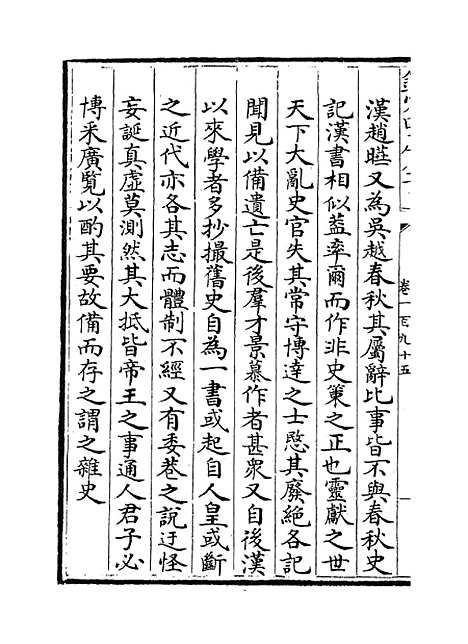 卷一百九十五
漢趙曄又為吳越春秋其屬辭比事皆不與春秋史
記漢書相似蓋率爾而作非史策之正也靈獻之世
天下大亂史官失其常守博達之士愍其廢絕各記
聞見以備遺亡是後羣才景慕作者甚衆又自後漢
以來學者多抄撮舊史自為一書或起自人皇或斷
之近代亦各其志而體制不經又有委巷之說迂怪
妄誕真虛莫測然其大抵皆帝王之事通人君子必
博采廣覽以酌其要故備而存之謂之雜史